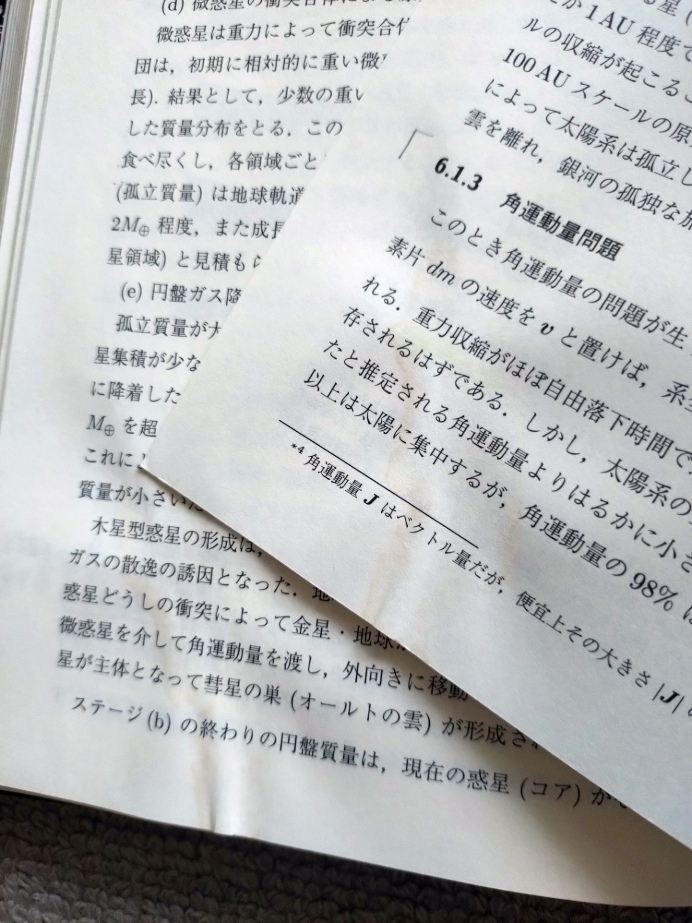 (d) 微惑星の衝突合体による
微惑星は重力によって衝突合体
団は，初期に相対的に重い微
長). 結果として，少数の重い
した質量分布をとる．この
食べ尽くし，各領域ごと
(孤立質量) は地球軌道
2M⊕ 程度，また成長
星領域) と見積もら
(e) 円盤ガス降
孤立質量が大
星集積が少な
に降着した
M⊕ を超
これに
質量が小さい
木星型惑星の形成は，
ガスの散逸の誘因となった．地
惑星どうしの衝突によって金星・地球
微惑星を介して角運動量を渡し，外向きに移動
星が主体となって彗星の巣 (オールトの雲) が形成さ
ステージ(b) の終わりの円盤質量は，現在の惑星 (コア) が
が 1 AU 程度で
ルの収縮が起こる
100 AU スケールの原
によって太陽系は孤立し
雲を離れ，銀河の孤独な
6.1.3 角運動量問題
このとき角運動量の問題が生
素片 dm の速度を v と置けば，系
れる．重力収縮がほぼ自由落下時間で
存されるはずである．しかし，太陽系の
たと推定される角運動量よりはるかに小さ
以上は太陽に集中するが，角運動量の 98% は
*4 角運動量 J はベクトル量だが，便宜上その大きさ |J|